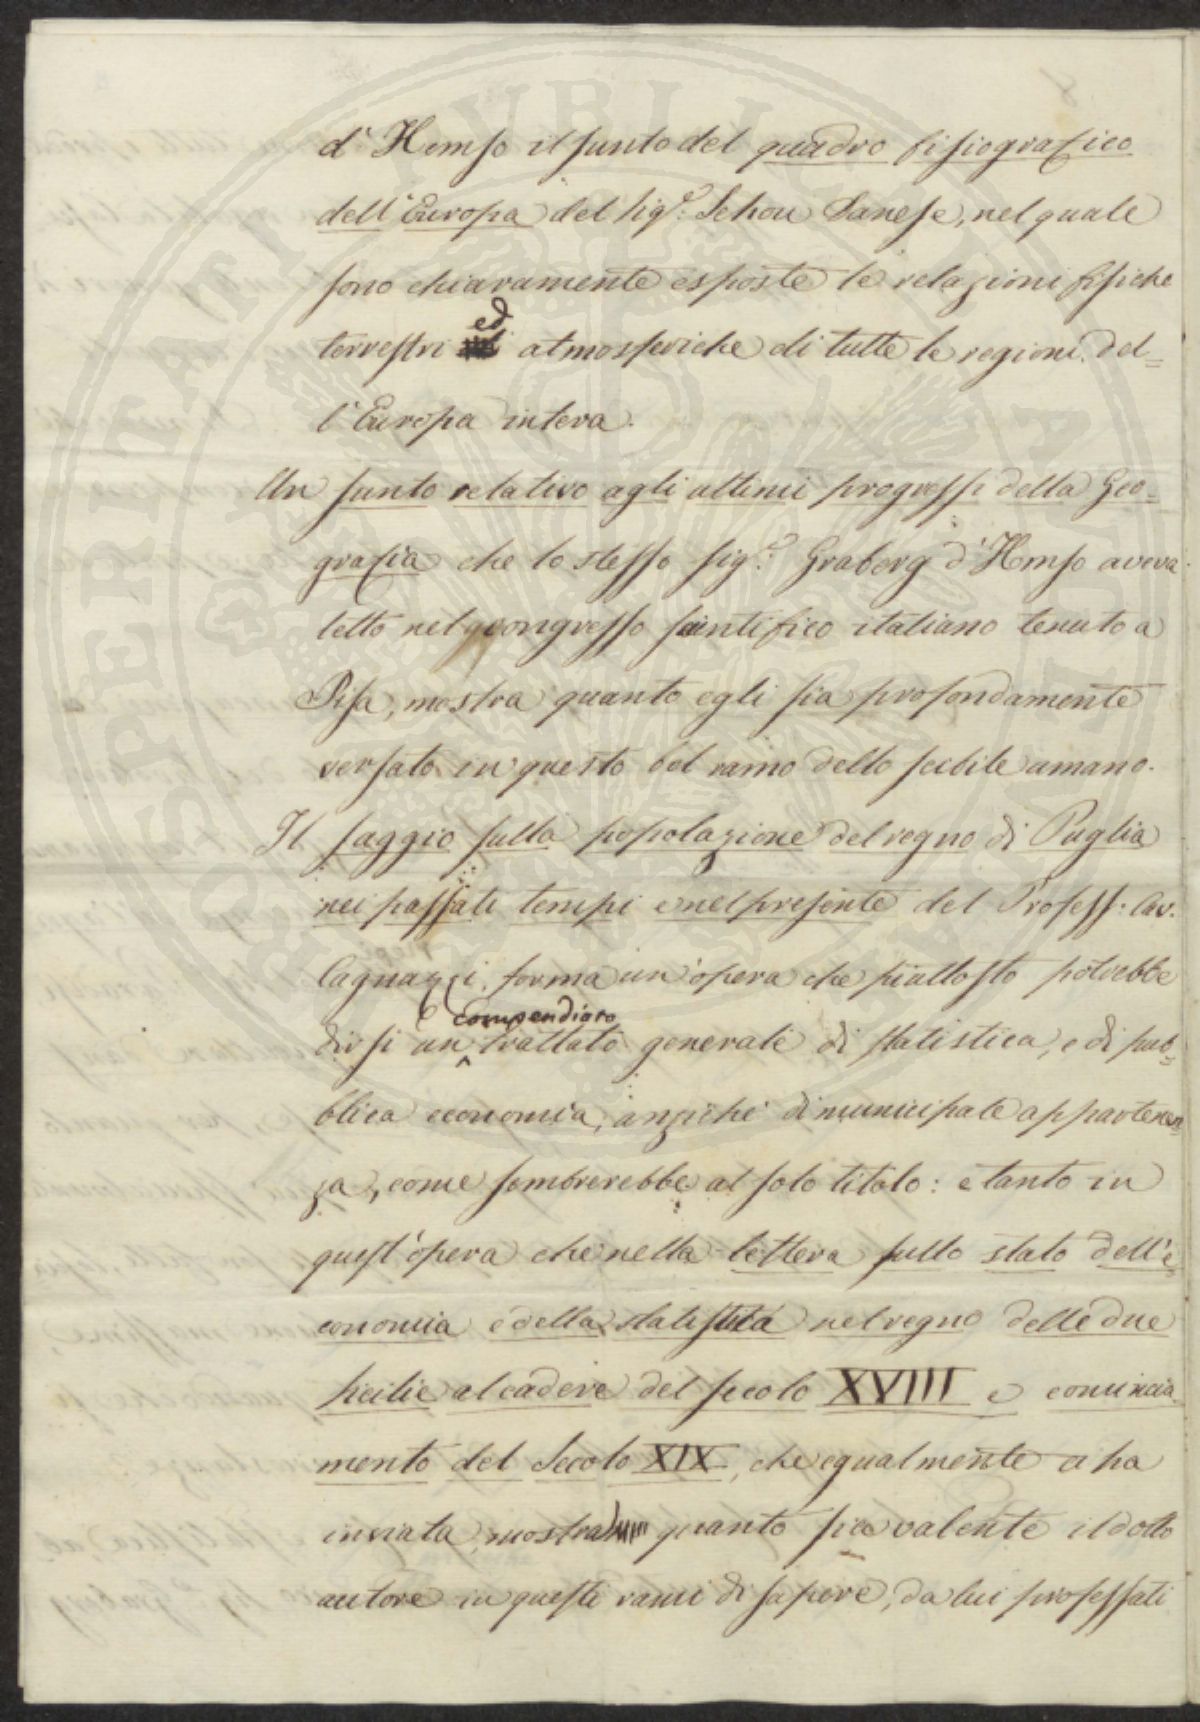 d'Hemso il sunto del quadro fisiografico
dell'Europa del sig.e Schou Danese, nel quale
sono chiaramente esposte le relazioni fisiche
terrestri ed atmosferiche di tutte le regioni del=
l'Europa intera.
Un sunto relativo agli ultimi progressi della Geo=
grafia che lo stesso sig.e Graberg d'Hemso aveva
letto nel congresso scientifico italiano tenuto a
Pisa, mostra quanto egli sia profondamente
versato in questo bel ramo dello scibile umano.
Il saggio sulla popolazione del regno di Puglia
nei passati tempi e nel presente del Profess. Cav.
Cagnazzi, forma un'opera che piuttosto potrebbe
dirsi un compendioso trattato generale di statistica, e di pub=
blica economia, anziché di municipale appartenen=
za, come sembrerebbe al solo titolo: e tanto in
quest'opera che nella lettera sullo stato dell'e=
conomia e della statistica nel regno delle due
Sicilie al cadere del secolo XVIII e comincia
mento del Secolo XIX, che egualmente ci ha
inviata, mostra quanto sia valente il dotto
autore in questi rami di sapere, da lui professati
PROSPERITATI PUBLICAE AUGENDAE